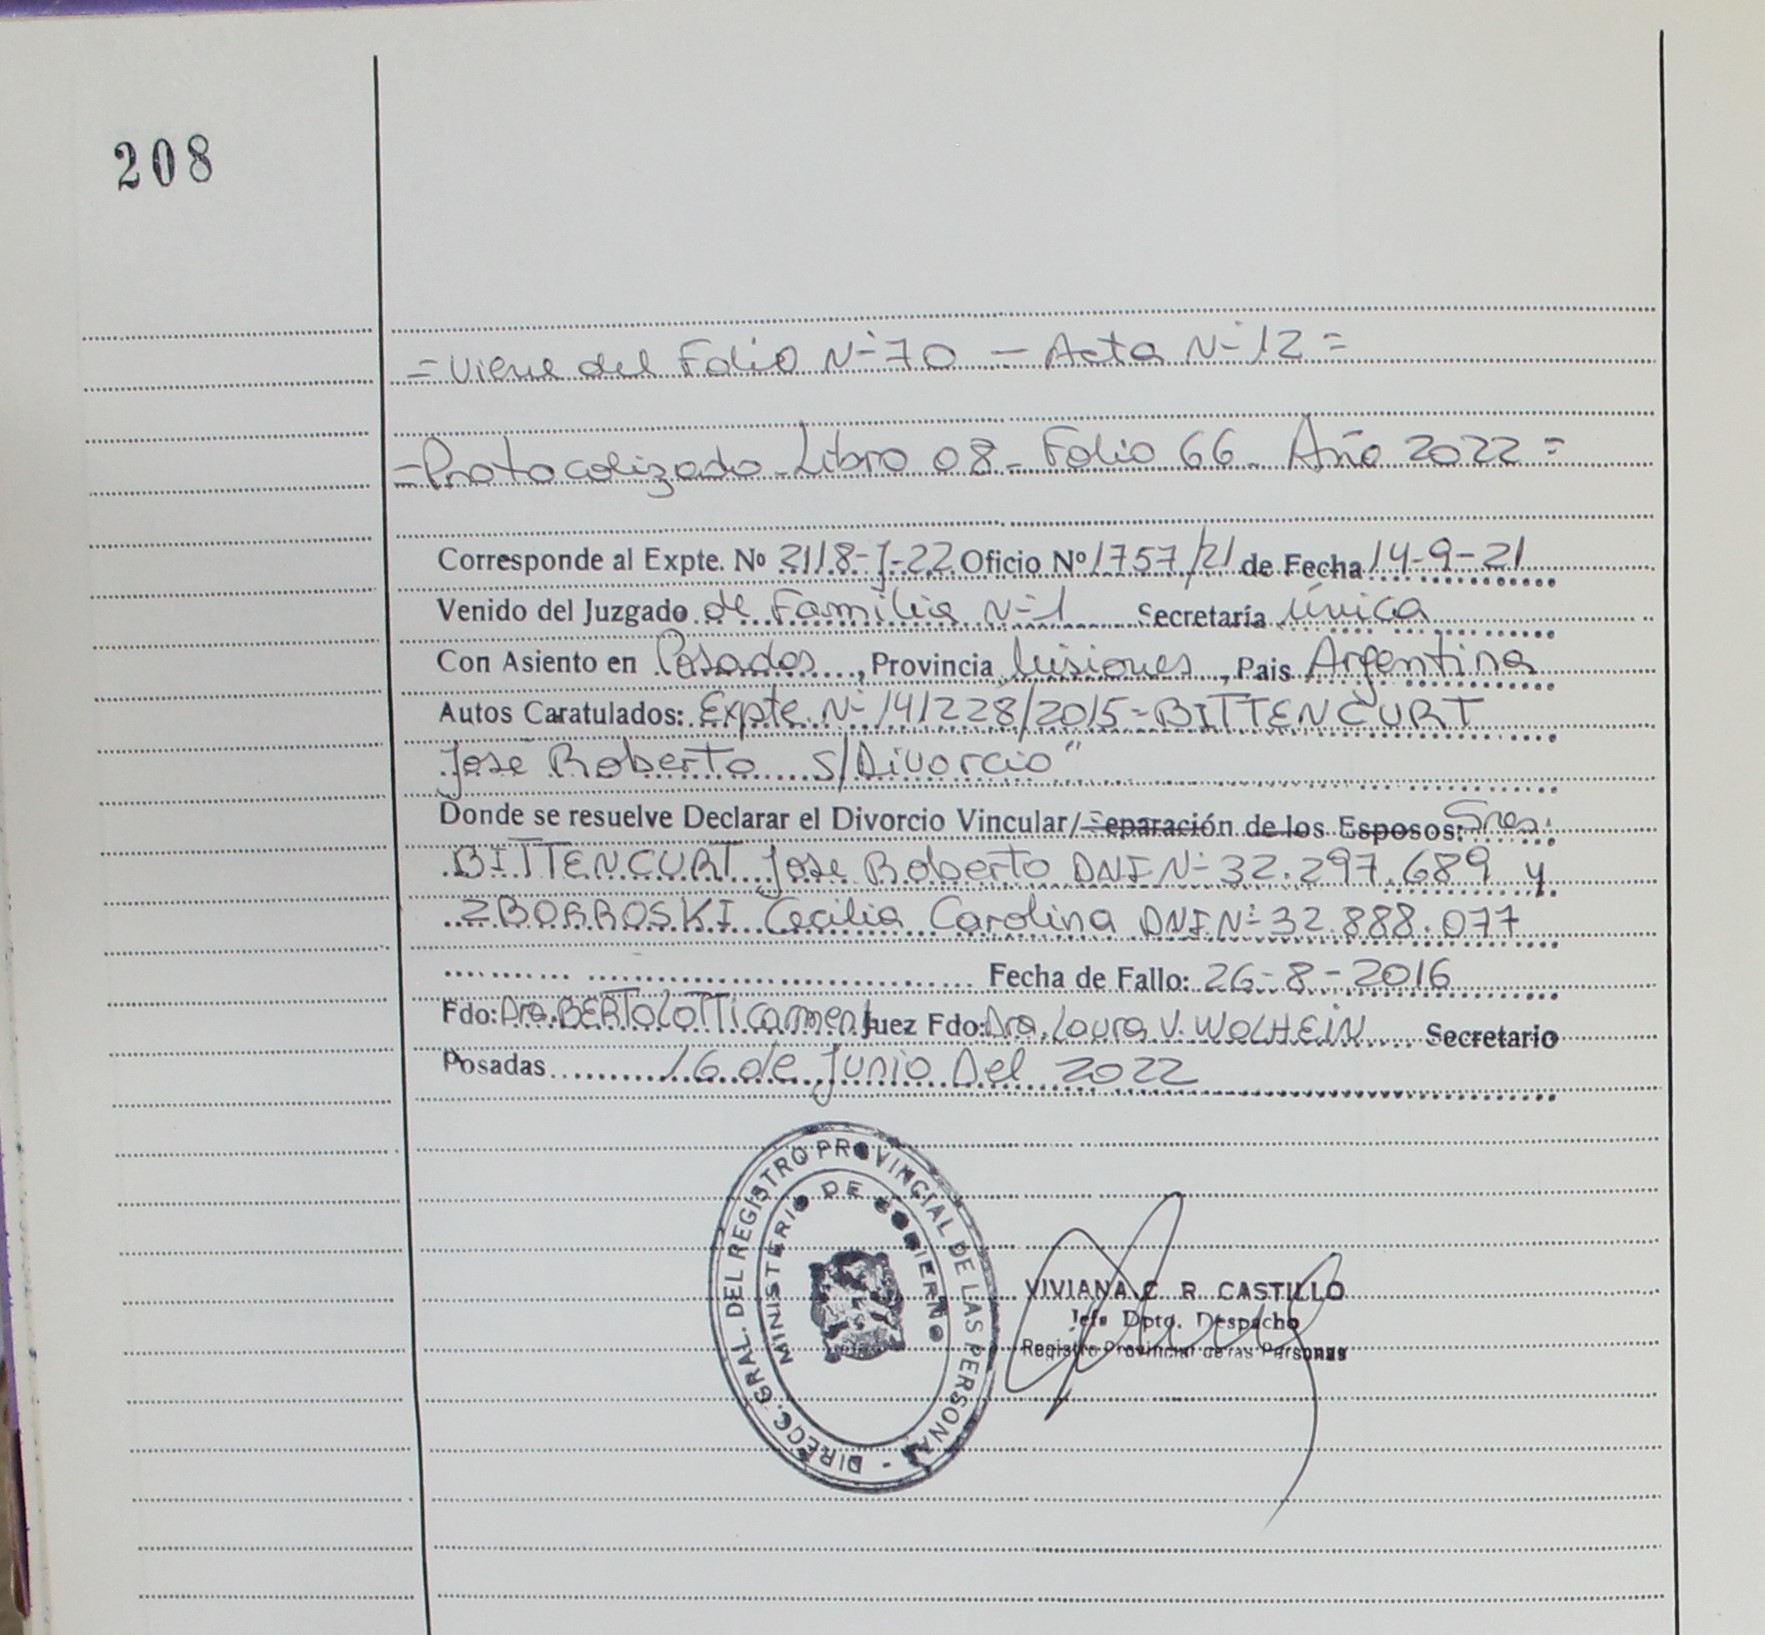 208
= Viene del Folio N° 70 — Acta N° 12 =
= Protocolizado - Libro 08 - Folio 66 - Año 2022 =
Corresponde al Expte. Nº 2118-J-22 Oficio Nº 1757/21 de Fecha 14-9-21
Venido del Juzgado de Familia N° 1 Secretaría Única
Con Asiento en Posadas, Provincia Misiones, Pais Argentina
Autos Caratulados: Expte. N° 141228/2015 - BITTENCURT
José Roberto s/Divorcio"
Donde se resuelve Declarar el Divorcio Vincular/Separación de los Esposos: Sres.
BITTENCURT José Roberto DNI N° 32.297.689 y
ZBOROSKI Cecilia Carolina DNI N° 32.888.077
Fecha de Fallo: 26-8-2016
Fdo: Dra. BERTOLOTTI Carmen Juez Fdo: Dra. Laura V. WOLHEIN Secretario
Posadas 16 de Junio Del 2022
DIRECC. GRAL. DEL REGISTRO PROVINCIAL DE LAS PERSONAS -
MINISTERIO DE GOBIERNO
VIVIANA C. R. CASTILLO
Jefe Dpto. Despacho
Registro Provincial de las Personas